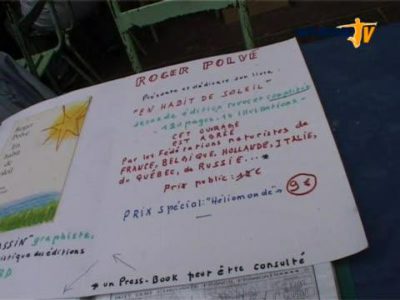 ROGER POLVÉ
Présente et dédicace son livre
"EN HABIT DE SOLEIL"
seconde édition revue et complétée
120 pages. 16 illustrations
CET OUVRAGE
EST AGRÉÉ
Par les Fédérations naturistes de
FRANCE, BELGIQUE, HOLLANDE, ITALIE,
du QUÉBEC, de RUSSIE...
Prix public:
PRIX spécial: "Héliomonde" 9€
* un Press-Book peut être consulté
Roger
Polvé
En
habit
de
soleil
graphiste,
des éditions
TV